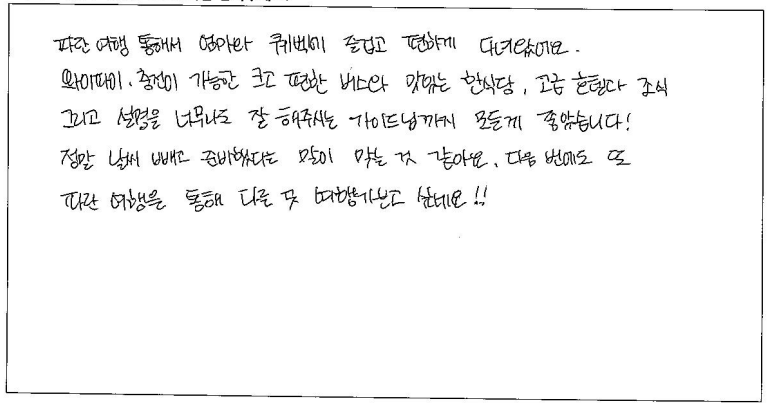 파란 여행 통해서 엄마와 퀘벡에 즐겁고 편하게 다녀왔어요.
와이파이, 충전이 가능한 크고 편한 버스와 맛있는 한식당, 고급 호텔과 조식
그리고 설명을 너무나도 잘 해주시는 가이드님까지 모든게 좋았습니다!
정말 날씨 빼고 준비했다는 말이 맞는 것 같아요. 다음 번에도 또
파란 여행을 통해 다른 곳 여행가보고 싶네요!!